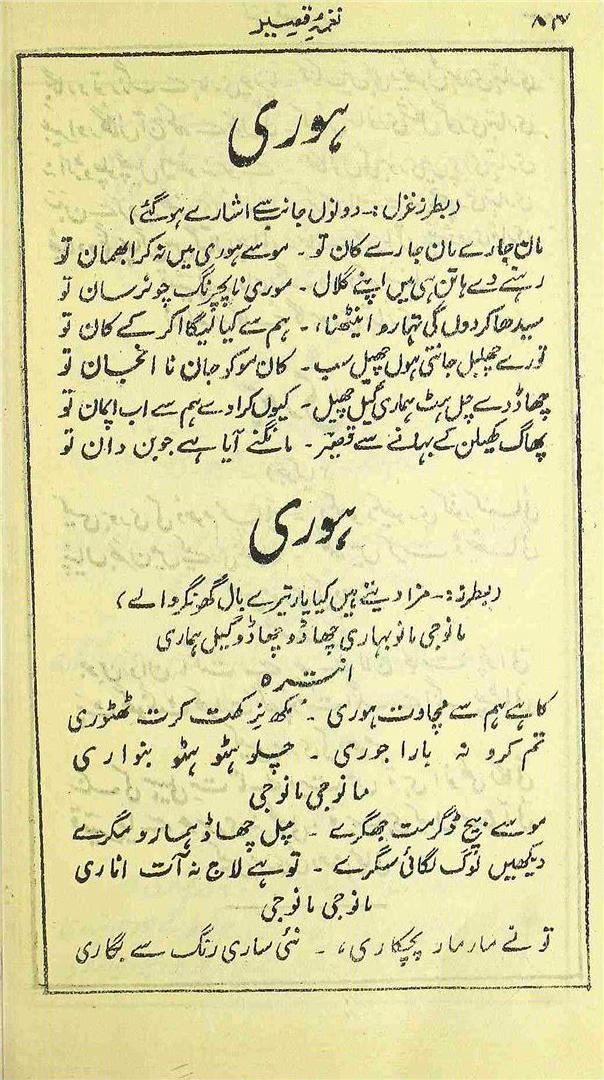 ۸۴
نغمہ قیصر
ہوری
(بطرز غزل :- دونوں جانب سے اشارے ہو گئے)
مان جارے مان جارے کان تو - موسے ہوری میں نہ کر ابھمان تو
رہنے دے ہاتن ہی میں اپنے گلال - موری نا پچرنگ چوئر سان تو
سیدھا کر دوں گی تہارو اینٹھنا، - ہم سے کیا لیگا اکڑ کے کان تو
تورے چھلبل جانتی ہوں چھیل سب - کان موکو جان نا انجان تو
چھاڈ دے چل ہٹ ہماری گیل چھیل - کیوں کراوے ہم سے اب اپمان تو
پھاگ کھیلن کے بہانے سے قیصر - مانگنے آیا ہے جوبن دان تو
ہوری
(بطرز :- مزا دیتے ہیں کیا یار تیرے بال گھونگر والے)
مانوجی مانو بہاری چھاڈو چھاڈو گیل ہماری
انترہ
کاہے ہم سے مچاوت ہوری - مکھ نرکھت کرت ٹھٹوری
تم کرو نہ بارا جوری - چلو ہٹو ہٹو بنواری
مانوجی مانوجی
موسے بیچ ڈگر مت جھگرے - چل چھاڈ ہمارو مگرے
دیکھیں لوگ لگائی سگرے - توہے لاج نہ آت اناری
مانوجی مانوجی
تو نے مار مار پچکاری، - نئی ساری رنگ سے بگاری